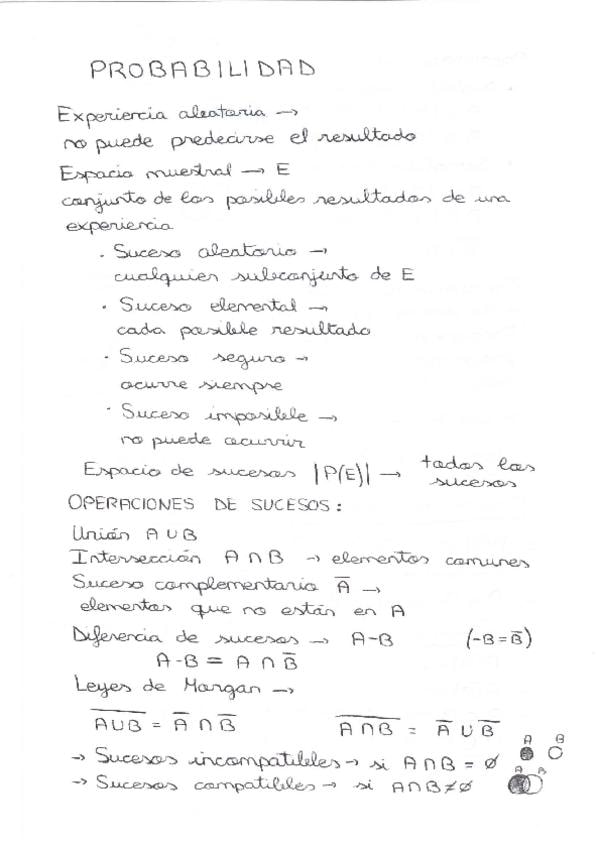 PROBABILIDAD
Experiencia aleatoria →
no puede predecirse el resultado
Espacio muestral → E
conjunto de los posibles resultados de una
experiencia
· Suceso aleatorio →
cualquier subconjunto de E
· Suceso elemental →
cada posible resultado
· Suceso seguro →
ocurre siempre
· Suceso imposible →
no puede ocurrir
Espacio de sucesos |P(E)| → todos los
sucesos
OPERACIONES DE SUCESOS:
Unión A ∪ B
Intersección A ∩ B → elementos comunes
Suceso complementario A̅ →
elementos que no están en A
Diferencia de sucesos → A-B (-B = B̅)
A-B = A ∩ B̅
Leyes de Morgan →
A̅∪̅B̅ = A̅ ∩ B̅ A̅∩̅B̅ = A̅ ∪ B̅
→ Sucesos incompatibles → si A∩B = ∅ A B
→ Sucesos compatibles → si A∩B ≠ ∅ A B